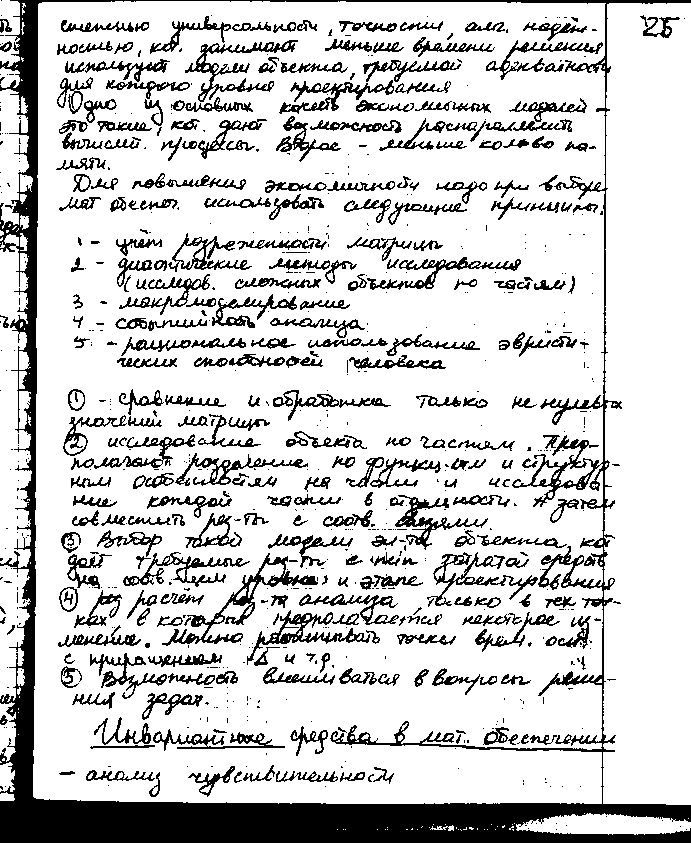 25
степенью универсальности, точности, алг. надёж-
ностью, кот. занимают меньше времени решения
используют модели объекта, требуемой адекватности
для каждого уровня проектирования
Одно из основных качеств экономичных моделей –
это такие, кот. дают возможность распараллелить
вычислит. процессы. Второе – меньше кол-во па-
мяти.
Для повышения экономичности надо при выборе
мат обеспеч. использовать следующие принципы:
1 – учёт разреженности матрицы
2 – диакоптические методы исследования
(исследов. сложных объектов по частям)
3 – макромоделирование
4 – событийность анализа
5 – рациональное использование эвристи-
ческих способностей человека
① – сравнение и обработка только не нулевых
значений матрицы
② исследование объекта по частям. Пред-
полагают разделение по функц-ым и структур-
ным особенностям на части и исследова-
ние каждой части в отдельности. А затем
совместить рез-ты с соотв. связями
③ Выбор такой модели эл-та объекта, кот
даёт требуемые рез-ты с min затратой средств
на соотв. уровне и этапе проектирования
④ расчёт рез-та анализа, только в тех точ-
ках, в которых предполагается некоторое из-
менение. Можно рассчитывать точки врем. оси
с приращением Δ и т.д.
⑤ Возможность вмешиваться в вопросы реше-
ния задач.
Инвариантные средства в мат. обеспечении
– анализ чувствительности